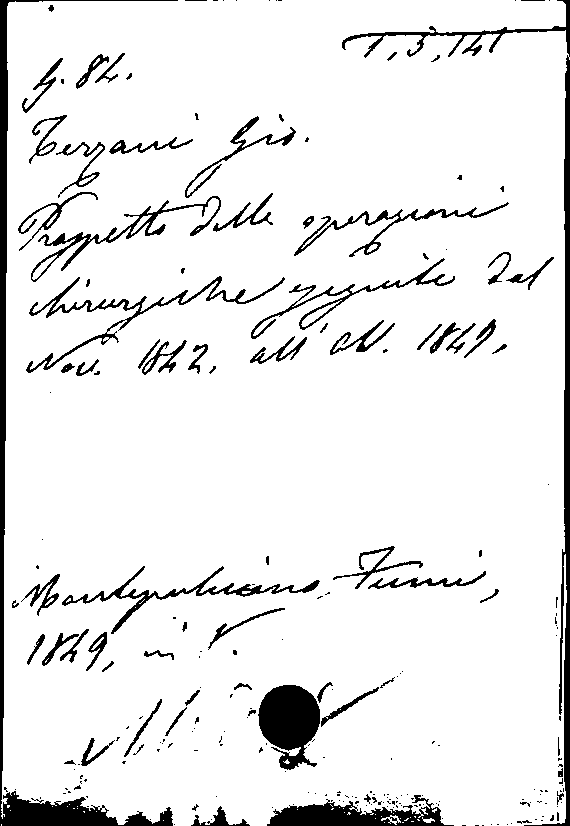 T, 5, 141
G. 84.
Terzani Gio.
Prospetto delle operazioni
chirurgiche eseguite dal
Nov. 1842. all' ott. 1849.
Montepulciano, Fumi,
1849, in 8.